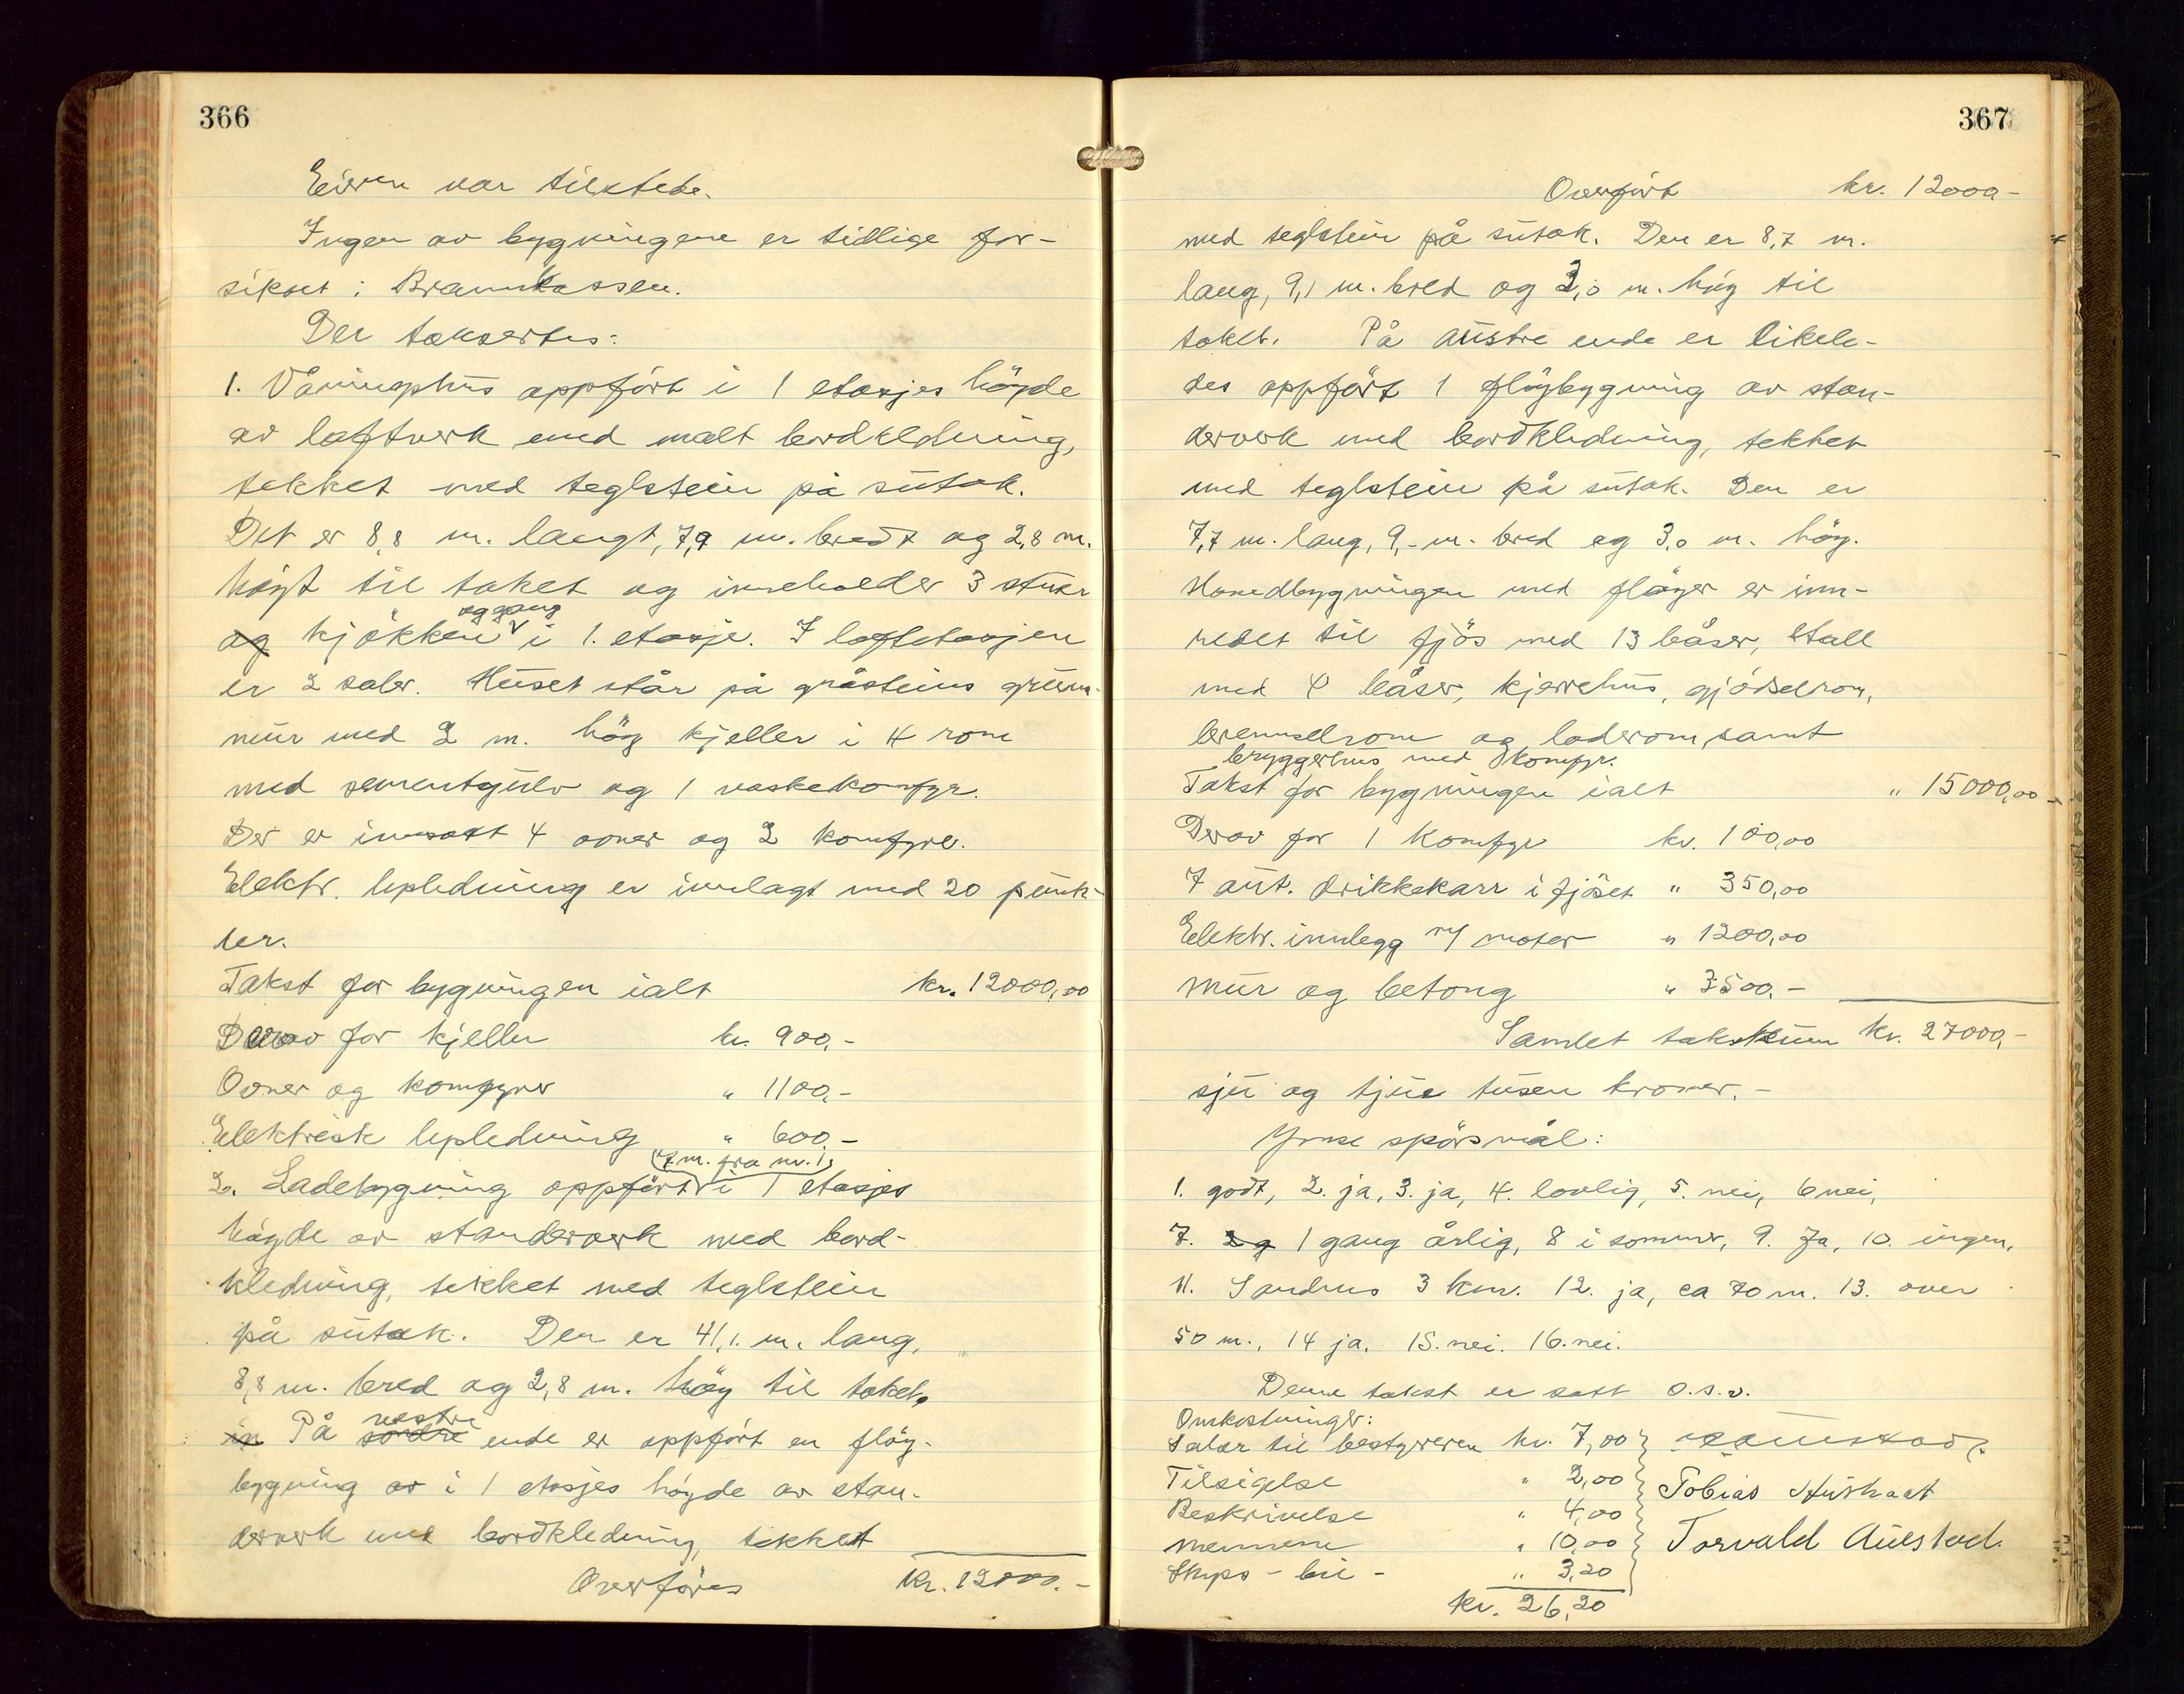 366
Eieren var tilstede.
Ingen av bygningene er tidlige for-
sikret i Brannkassen.
Der taksertes:
1. Våningshus oppført i 1 etasjes høyde
av laftverk med malt bordkledning,
tekket med teglstein på sutak.
Det er 8,8 m. langt, 7,9 m. bredt og 2,8 m.
høyt til taket og inneholder 3 stuer
og gang
og kjøkken i 1. etasje. I loftetasjen
er 2 saler. Huset står på gråsteins grunn-
mur med 2 m. høy kjeller i 4 rom
med sementgulv og 1 vaskekomfyr.
Der er innsatt 4 ovner og 2 komfyre.
Elektr. lysledning er innlagt med 20 punk-
ter.
Takst for bygningen ialt kr. 12000,00
Derav for kjeller kr. 900,-
Ovner og komfyrer " 1100,-
Elektrisk lysledning " 600,-
(7 m. fra nr. 1)
2. Ladebygning oppført i 1 etasjes
høyde av standerverk med bord-
kledning, tekket med teglstein
på sutak. Den er 41,1. m. lang,
8,8 m. bred og 2,8 m. høy til taket.
vestre
in På søndre ende er oppført en fløy-
bygning av i 1 etasjes høyde av stan-
derverk med bordkledning, tekket
Overføres kr. 12000.-
367
Overført kr. 12000-
med teglstein på sutak. Den er 8,7 m.
lang, 9,1 m. bred og 3,0 m. høy til
taket. På austre ende er likele-
des oppført 1 fløybygning av stan-
derverk med bordkledning, tekket
med teglstein på sutak. Den er
7,7 m. lang, 9,- m. bred og 3,0 m. høy.
Hovedbygningen med fløyer er inn-
redet til fjøs med 13 båser, stall
med 4 båser, kjerrehus, gjødselrom,
brennselrom og laderom, samt
bryggerhus med komfyr.
Takst for bygningen ialt " 15000,00
Derav for 1 Komfyr kr. 100,00
7 aut. drikkekarr i fjøset " 350,00
Elektr. innlegg m/ motor " 1200,00
Mur og betong " 7500.-
Samlet takstsum kr. 27000,-
sju og tjue tusen kroner.-
Ymse spørsmål:
1. godt, 2. ja, 3. ja, 4. lovlig, 5. nei, 6 nei,
7. 2 g 1 gang årlig, 8 i sommer, 9. Ja, 10. ingen,
11. Sandnes 3 km. 12. ja, ca 70 m. 13. over
50 m., 14 ja. 15. nei. 16. nei.
Denne takst er satt o.s.v.
Omkostninger:
Salær til bestyreren kr. 7,00
Tilsigelse " 2,00
Beskrivelse " 4,00 Tobias
Mennene " 10,00 Torvald Aulestad.
Skyss - bil - " 3,20
kr. 26,20